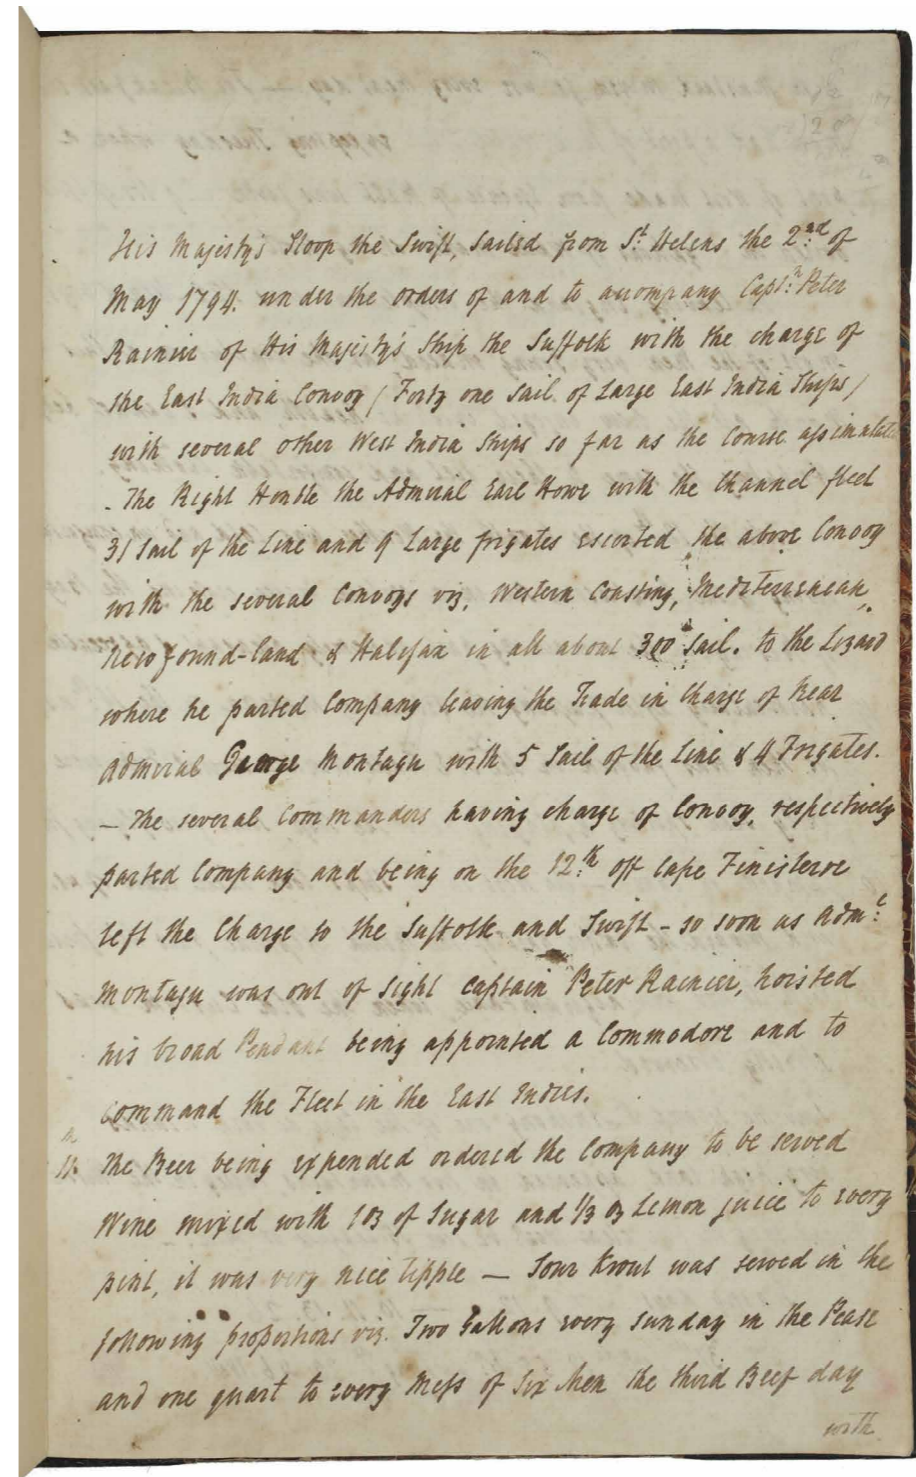 His Majesty's Sloop the Swift, sailed from St. Helens the 2nd. of
May 1794. under the orders of and to accompany Captn. Peter
Rainier of His Majesty's Ship the Suffolk with the charge of
the East India Convoy / Forty one Sail of Large East India Ships /
with several other West India Ships so far as the Course assimulated
- The Right Honble the Admiral Earl Howe with the Channel fleet
31 Sail of the Line and 9 Large frigates escorted the above Convoy
with the several Convoys viz, Western Coasting, Mediterranean,
Newfound-land & Halifax in all about 300 Sail. to the Lizard
where he parted Company leaving the Trade in Charge of Rear
Admiral George Montagu with 5 Sail of the Line & 4 Frigates.
- The several Commanders having charge of Convoy, respectively
parted Company and being on the 12.th off Cape Finisterre
left the Charge to the Suffolk and Swift - so soon as Adml.
Montagu was out of Sight Captain Peter Rainier, hoisted
his broad Pendant being appointed a Commodore and to
Command the Fleet in the East Indies.
The Beer being expended ordered the Company to be served
Wine mixed with 1 oz of Sugar and 1/3 oz Lemon juice to every
pint, it was very nice tipple — Sour Krout was served in the
following proportions viz. Two Gallons every Sunday in the Pease
and one quart to every Mess of Six Men the third Beef day
with